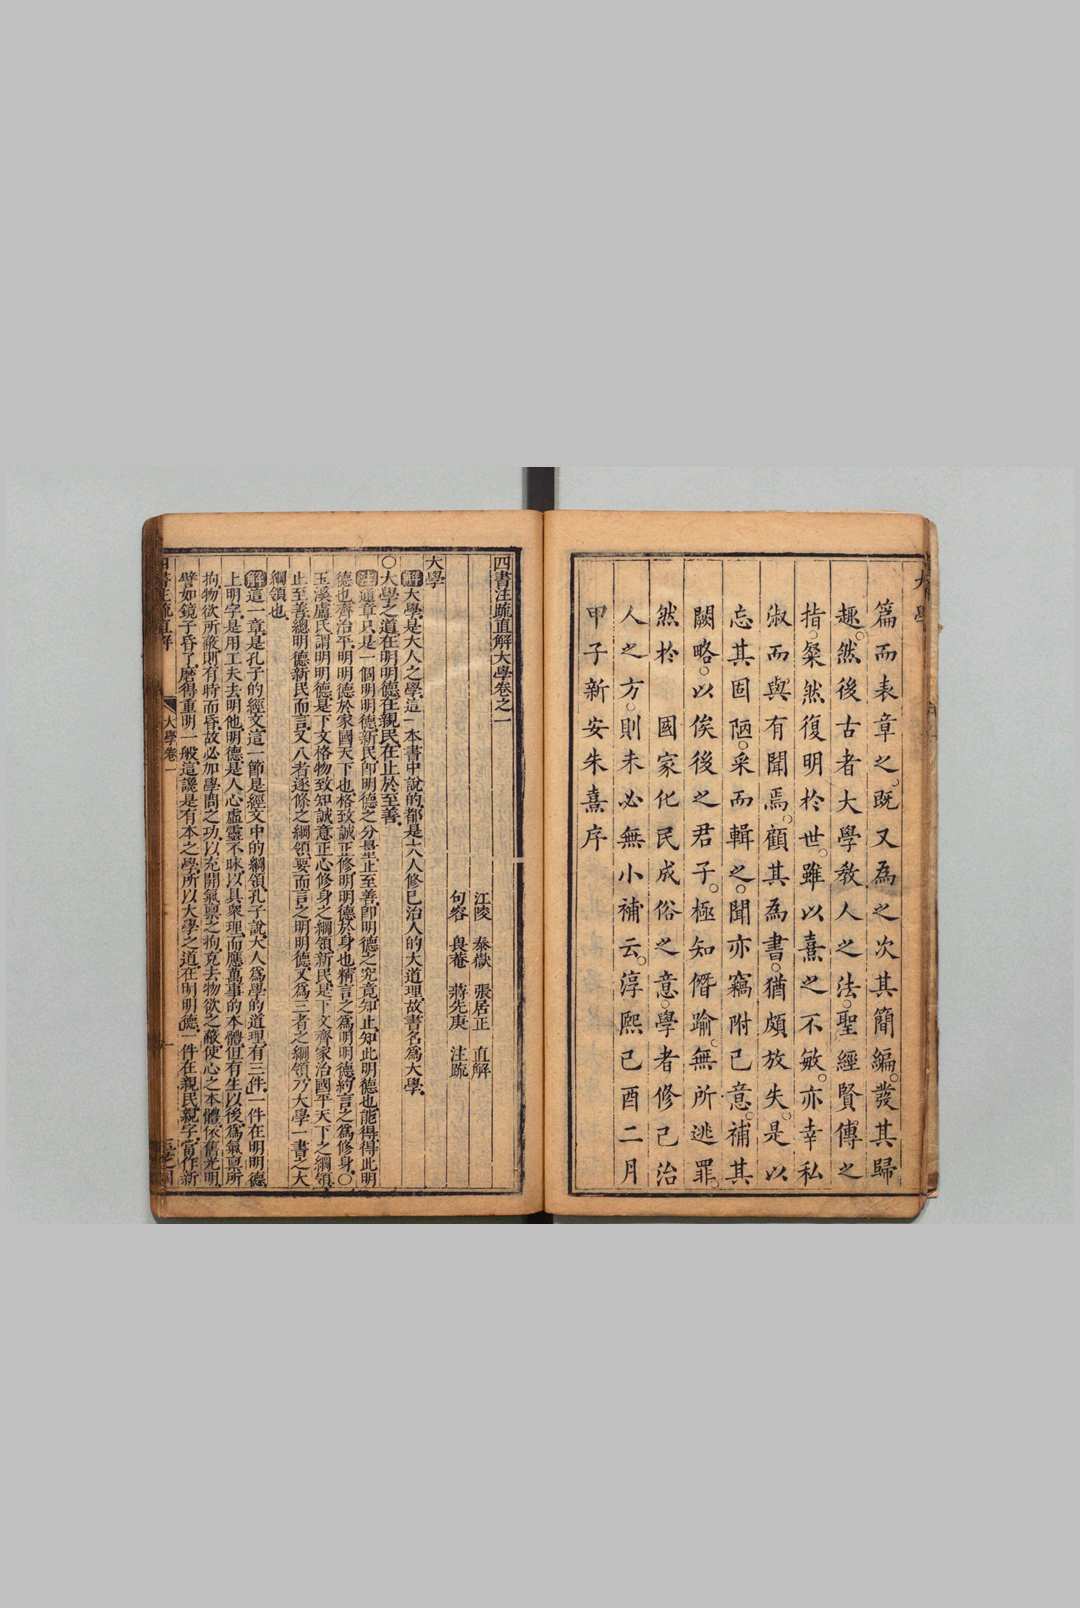 大學
篇而表章之。既又為之次其簡編。發其歸
趣。然後古者大學教人之法。聖經賢傳之
指。粲然復明於世。雖以熹之不敏。亦幸私
淑而與有聞焉。顧其為書。猶頗放失。是以
忘其固陋。采而輯之。聞亦竊附己意。補其
闕略。以俟後之君子。極知僭踰。無所逃罪。
然於國家化民成俗之意。學者修己治
人之方。則未必無小補云。淳熙己酉二月
甲子新安朱熹序
四書注疏直解大學卷之一
江陵 泰嶽 張居正 直解
句容 長菴 蔣先庚 注疏
大學
解大學是大人之學、這一本書中說的、都是大人修己治人的大道理、故書名為大學、
○大學之道、在明明德、在親民、在止於至善、
注通章只是一個明明德、新民即明德之分量、止至善、即明德之究竟、知止、知此明德也、能得、得此明
德也、齊治平、明明德於家國天下也、格致誠正修、明明德於身也、精言之為明明德、約言之為修身、○
玉溪盧氏謂明明德、是下文格物致知誠意正心修身之綱領、新民、是下文齊家治國平天下之綱領、
止至善、總明德新民而言、又八者逐條之綱領、要而言之、明明德、又為三者之綱領、乃大學一書之大
綱領也、
解這一章、是孔子的經文、這一節、是經文中的綱領、孔子說、大人為學的道理、有三件、一件在明明德、
上明字、是用工夫去明他、明德、是人心虛靈不昧、以具眾理、而應萬事的本體、但有生以後、為氣稟所
拘、物欲所蔽、則有時而昏、故必加學問之功、以充開氣稟之拘、克去物欲之蔽、使心之本體、依舊光明、
譬如鏡子昏了、磨得重明一般、這纔是有本之學、所以大學之道、在明明德、一件在親民、親字、當作新
四書注疏直解 大學卷一 一